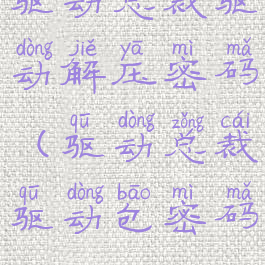 驱动总裁驱
dòng jiě yā mì mǎ
动解压密码
qū dòng zǒng cái
（驱动总裁
qū dòng bāo mì mǎ
驱动包密码